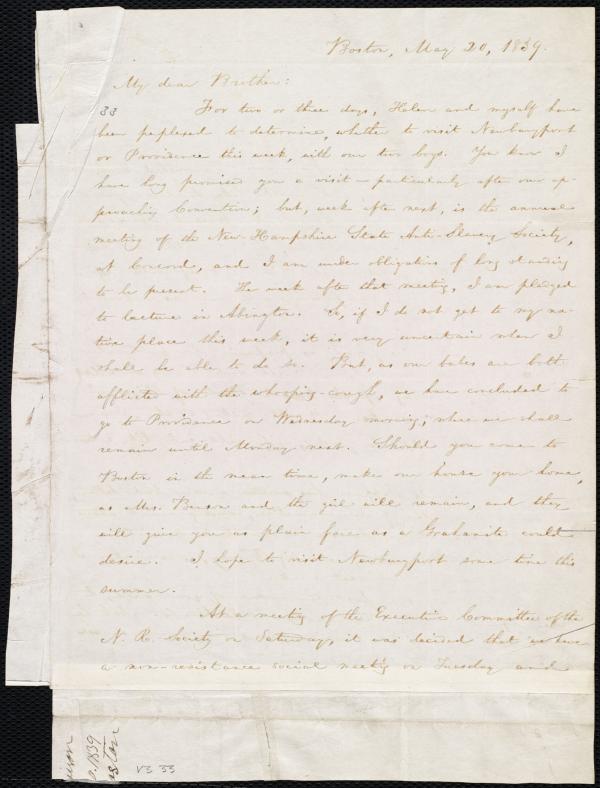 Boston, May 20, 1839.
My dear Brother:
33
For two or three days, Helen and myself have
been perplexed to determine, whether to visit Newburyport
or Providence this week, with our two boys. You know I
have long promised you a visit — particularly after our ap-
proaching Convention; but, week after next, is the annual
meeting of the New-Hampshire State Anti-Slavery Society,
at Concord, and I am under obligations of long standing
to be present. The week after that meeting, I am pledged
to lecture in Abington. So, if I do not get to my na-
tive place this week, it is very uncertain when I
shall be able to do so. But, as our babes are both
afflicted with the whooping-cough, we have concluded to
go to Providence on Wednesday morning, where we shall
remain until Monday next. Should you come to
Boston in the mean time, make our house your home,
as Mrs. Benson and the girl will remain, and they
will give you as plain fare as a Grahamite could
desire. I hope to visit Newburyport some time this
summer.
At a meeting of the Executive Committee of the
N. R. Society on Saturday, it was decided that we have
a non-resistance social meeting on Tuesday and
1839
V3 33